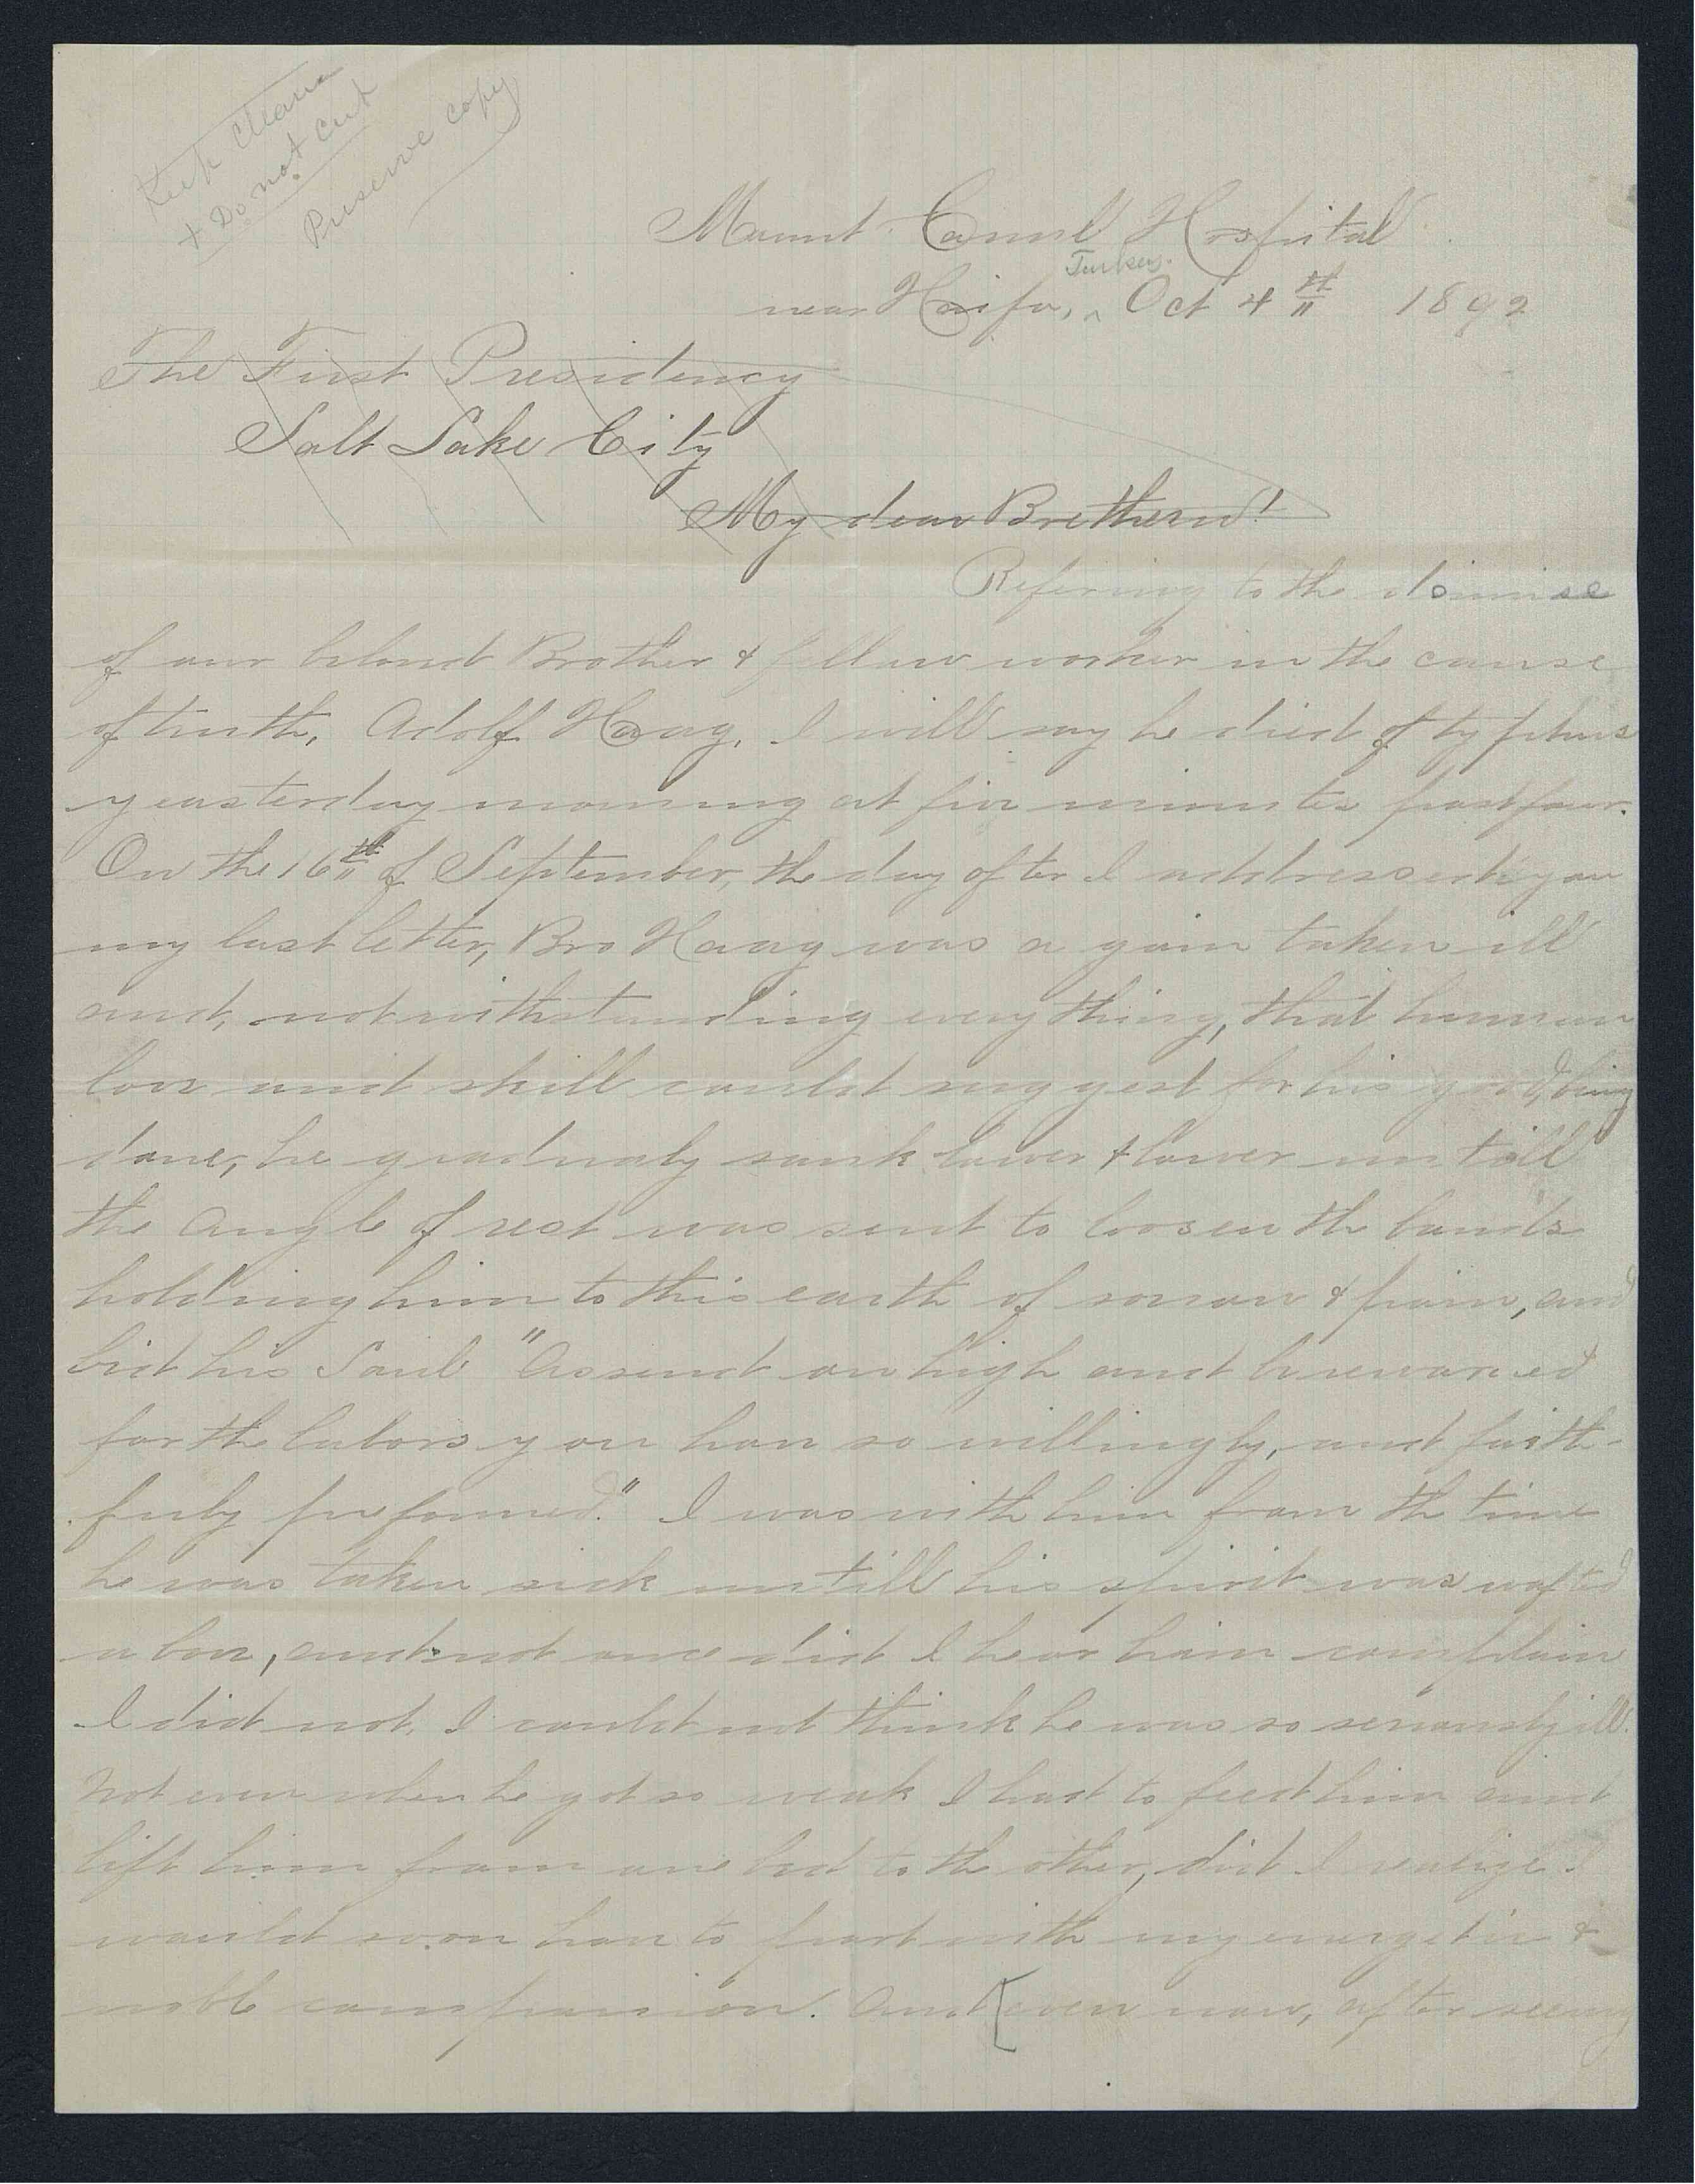 Keep clean
& Do not cut
Preserve copy
Mount Carmel Hospital
Turkey.
near Haifa, ^ Oct 4th 1892
The First Presidency
Salt Lake City
My dear Brethern!
Refering to the demise
of our beloved Brother & fellow worker in the cause
of truth, Adolf Haag, I will say he died of typhus
yeasterday morning at five minutes past four.
On the 16th of September, the day after I addressed you
my last letter, Bro Haag was a gain taken ill
and, notwithstanding everything, that human
love and skill could suggest for his good, being
done, he gradualy sunk lower & lower untill
the Angle of rest was sent to loosen the bands
holding him to this earth of sorrow & pain, and
bid his Soul "Assend on high and be rewarded
for the labors you have so willingly, and faith-
fuly preformed." I was with him from the time
he was taken sick untill his spirit was wafted
above, and not once did I hear him complain
I did not, I could not think he was so seriously ill.
Not even when he got so weak I had to feed him and
lift him from one bed to the other, did I realize I
would soon have to part with my energetic &
noble companion. And [even now, after seeing